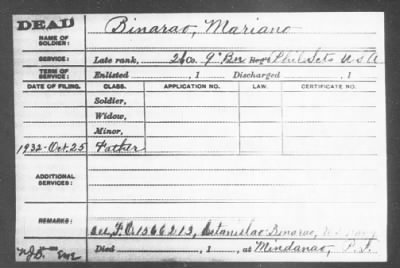 DEAD
NAME OF SOLDIER: Binarao, Mariano
SERVICE: Late rank, 26 Co. 9" Bn Reg't Phil Scts U S A
TERM OF SERVICE: Enlisted , 1 Discharged , 1
DATE OF FILING. CLASS. APPLICATION NO. LAW. CERTIFICATE NO.
Soldier,
Widow,
Minor,
1932-Oct. 25 Father
ADDITIONAL SERVICES:
REMARKS:
1566213, Estanislao Binarao,
Died , 1 , at Mindanao, P. I.